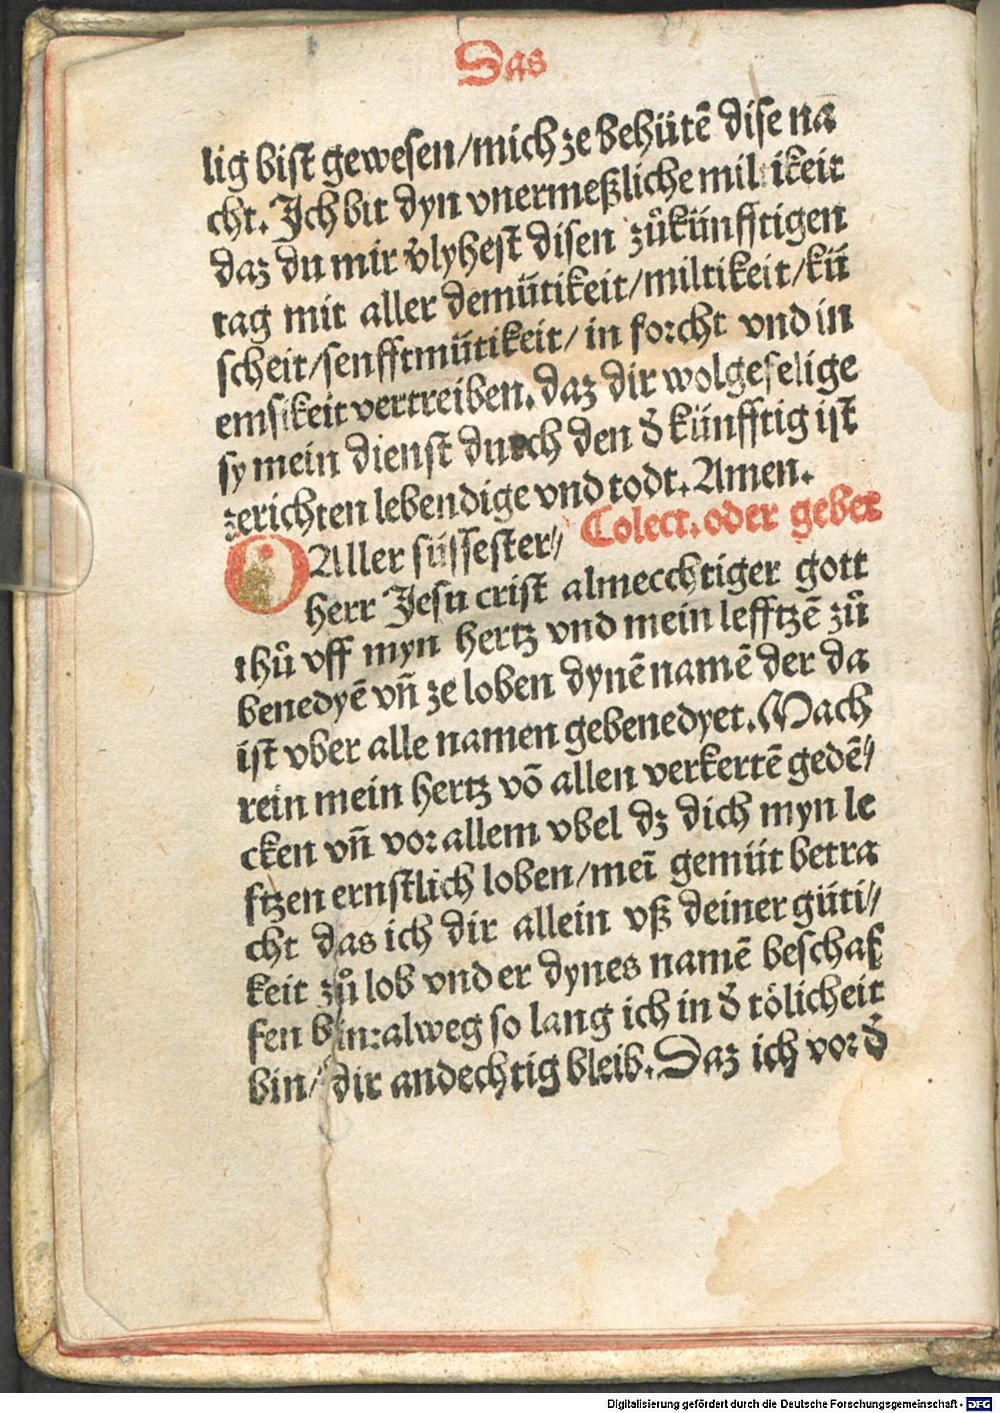 Das
lig bist gewesen/mich ze behütē dise na
cht. Ich bit dyn vnermeßliche miltikeit
daz du mir v̄lyhest disen zůkünfftigen
tag mit aller demütikeit/miltikeit/kü
scheit/senfftmütikeit/ in forcht vnd in
emsikeit vertreiben. daz dir wolgefelige
sy mein dienst durch den d̄ künfftig ist
zerichten lebendige vnd todt. Amen.
Colect. oder gebet
O Aller süssester//
herr Jesu crist almecchtiger gott
thů vff myn hertz vnd mein lefftzē zů
benedyē vn̄ ze loben dynē namē der da
ist vber alle namen gebenedyet. Mach
rein mein hertz vō allen verkertē gedē//
cken vn̄ vor allem vbel dz dich myn le
ftzen ernstlich loben/mei̅ gemüt betra
cht das ich dir allein vß deiner güti//
keit zů lob vnd er dynes namē beschaf
fen bin: alweg so lang ich in d̄ tölicheit
bin/ dir andechtig bleib. Daz ich vor d̄
Digitalisierung gefördert durch die Deutsche Forschungsgemeinschaft - DFG